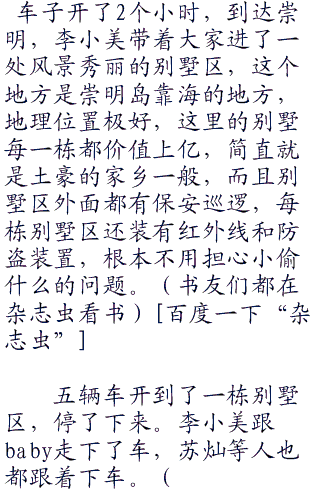 车子开了2个小时，到达崇
明，李小美带着大家进了一
处风景秀丽的别墅区，这个
地方是崇明岛靠海的地方，
地理位置极好，这里的别墅
每一栋都价值上亿，简直就
是土豪的家乡一般，而且别
墅区外面都有保安巡逻，每
栋别墅区还装有红外线和防
盗装置，根本不用担心小偷
什么的问题。（书友们都在
杂志虫看书）[百度一下“杂
志虫”]
五辆车开到了一栋别墅
区，停了下来。李小美跟
baby走下了车，苏灿等人也
都跟着下车。（